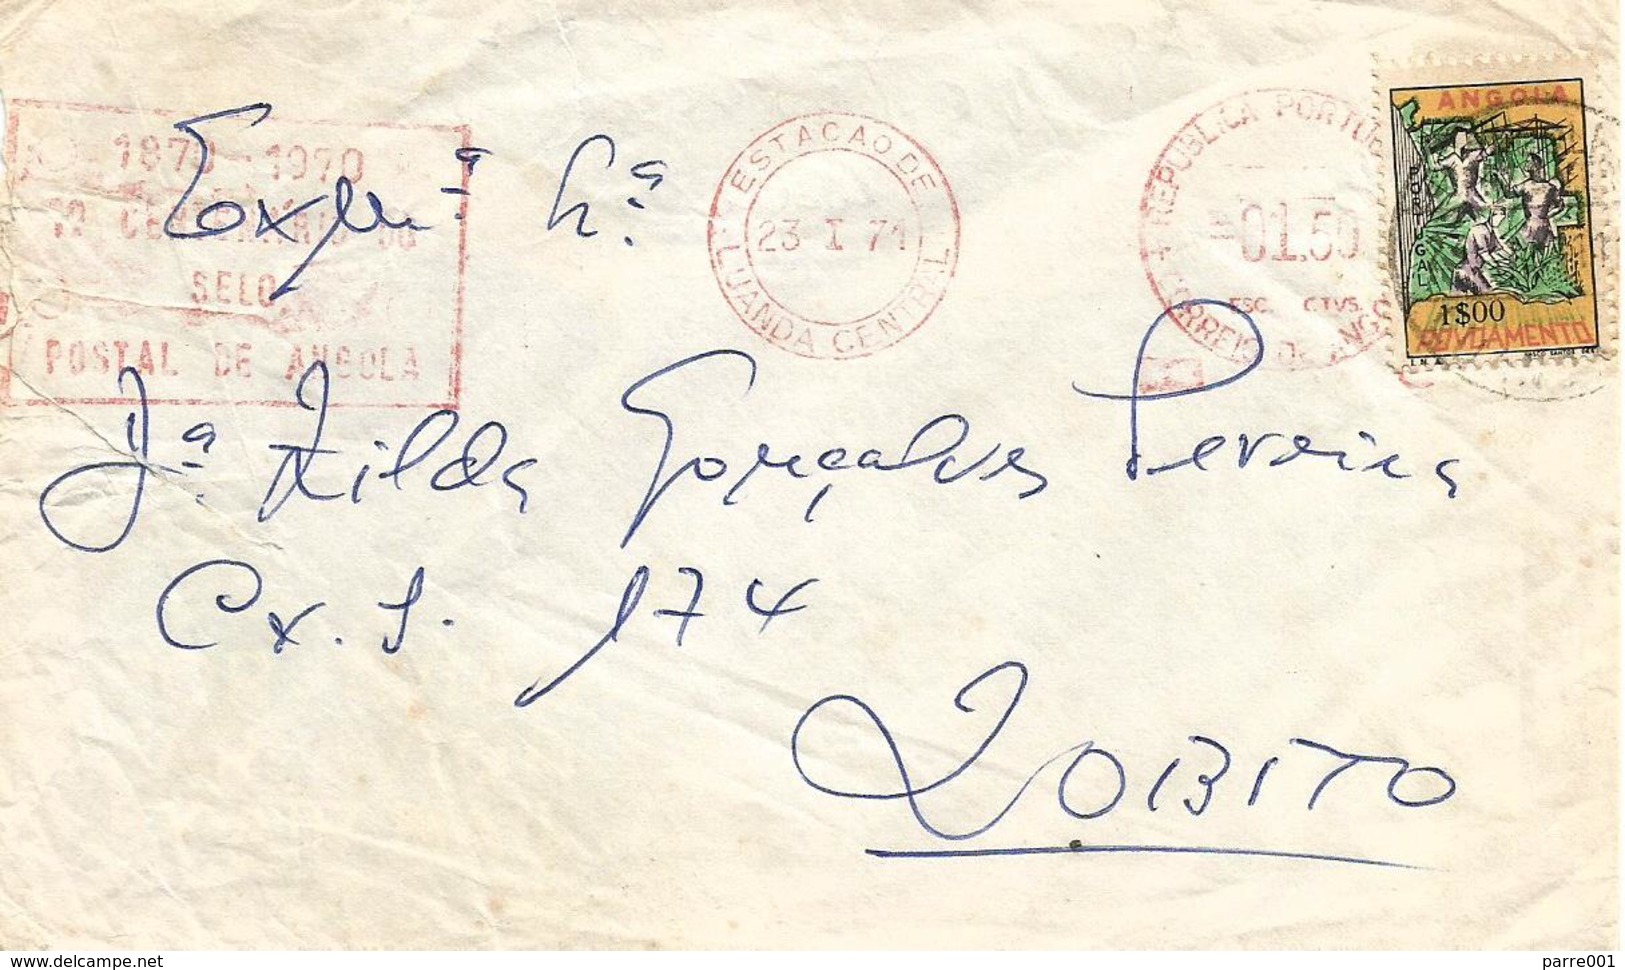 1870-1970
1º CENTENÁRIO DO
SELO
POSTAL DE ANGOLA
ESTACAO DE
23 I 71
LUANDA CENTRAL
REPUBLICA PORTUG
=01.50
ESC. CTVS.
CORREIOS DE ANGO
ANGOLA
PORTUGAL
1$00
POVOAMENTO
Exmª Sª
Dª Hilda Gonçalves Pereira
Cx. P. 174
LOBITO
www.delcampe.net
parre001